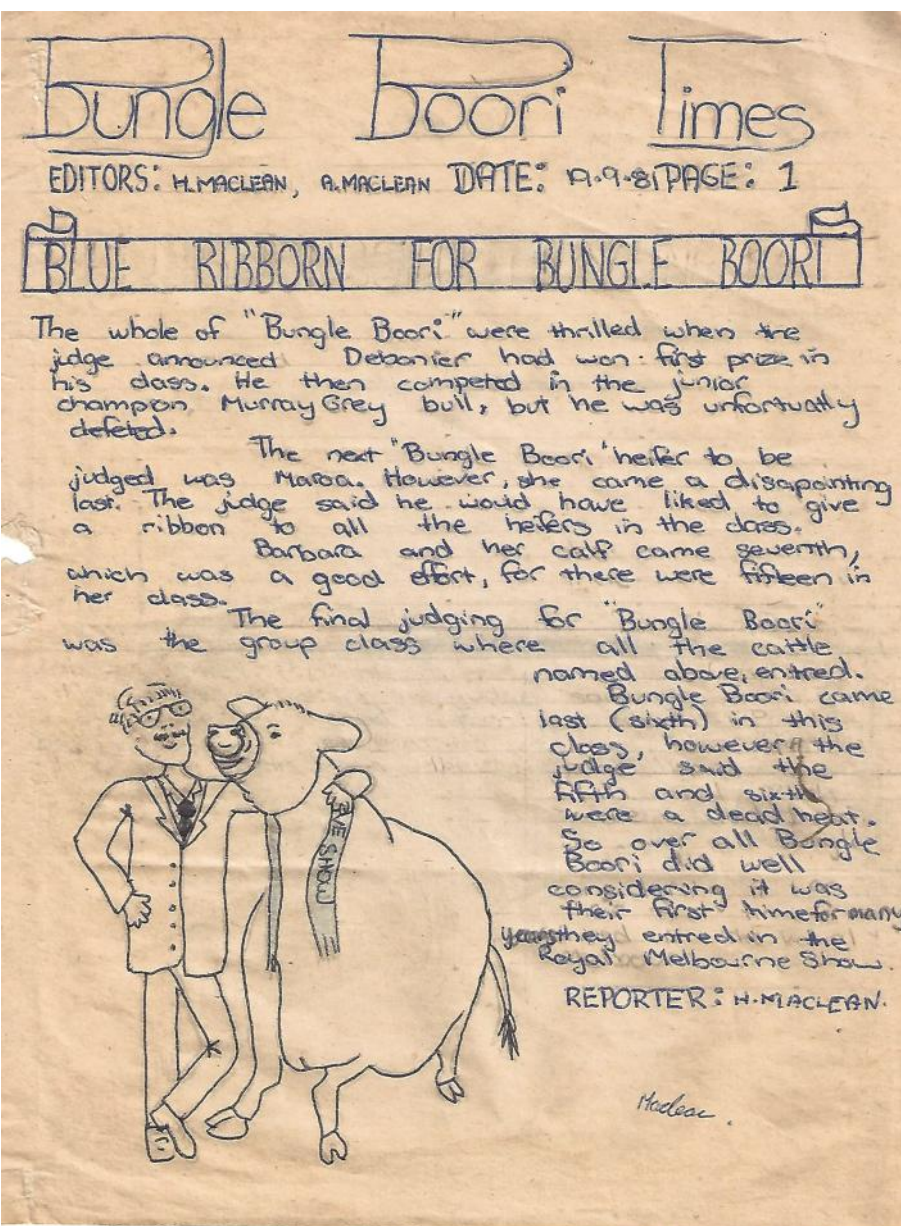 Bungle Boori Times
EDITORS: H.MACLEAN, A.MACLEAN DATE: 19.9.81 PAGE: 1
BLUE RIBBORN FOR BUNGLE BOORI
The whole of "Bungle Boori" were thrilled when the
judge announced Debonier had won first prize in
his class. He then competed in the junior
champion Murray Grey bull, but he was unfortuatly
defeted.
The next "Bungle Boori" heifer to be
judged was Maroa. However, she came a disapointing
last. The judge said he would have liked to give
a ribbon to all the heifers in the class.
Barbara and her calf came seventh,
which was a good effort, for there were fifteen in
her class.
The final judging for "Bungle Boori"
was the group class where all the cattle
named above, entred.
Bungle Boori came
last (sixth) in this
class, however the
judge said the
fifth and sixth
were a dead heat.
So over all Bungle
Boori did well
considering it was
their first time for many
years they entred in the
Royal Melbourne Show.
REPORTER: H.MACLEAN.
SHOW
Maclean.